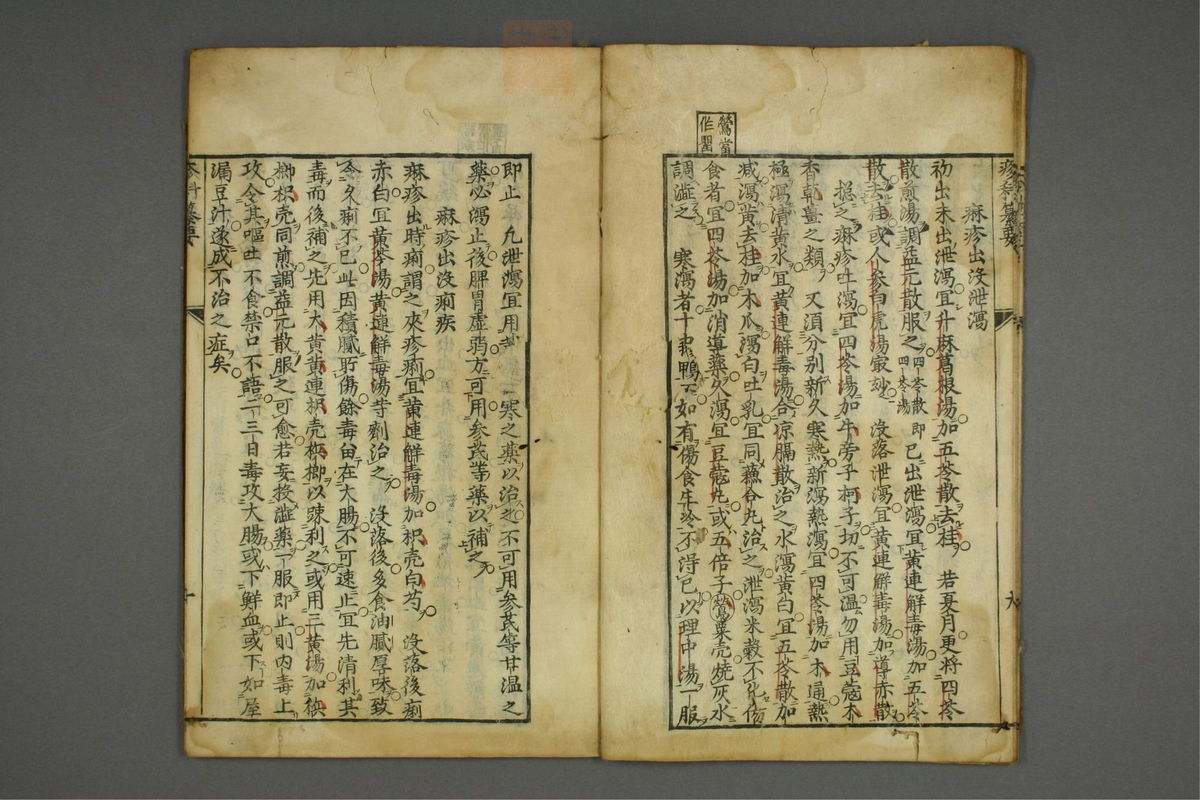 疹科纂要
麻疹出沒泄瀉
初出未出泄瀉宜升麻葛根湯加五苓散去桂　若夏月更將四苓
散煎湯調益元散服之四苓散即四苓湯　已出泄瀉宜黃連解毒湯加五苓
散去桂或人參白虎湯寂妙　沒落泄瀉宜黃連解毒湯加導赤散
揔之麻疹吐瀉宜四苓湯加牛旁子柯子切不可溫勿用豆蔻木
香乾薑之類　又須分別新久寒熱新瀉熱瀉宜四苓湯加木通熱
極瀉清黃水宜黃連解毒湯合凉膈散治之水瀉黃白宜五苓散加
减瀉黃去桂加木瓜瀉白吐乳宜同藿合丸治之泄瀉米穀不化傷
食者宜四苓湯加消導藥久瀉宜豆蔻丸或五倍子鶯粟壳燒灰水
調澁之　寒瀉者十下如有傷食生冷不得已以理中湯一服
鶯當
作罌
九
即止　凡泄瀉宜用寒之藥以治之不可用參芪等甘溫之
藥必瀉止後脾胃虛弱方可用參芪等藥以補之
麻疹出沒痢疾
麻疹出時痢謂之夾疹痢宜黃連解毒湯加枳壳白芍　沒落後痢
赤白宜黃芩湯黃連解毒湯等劑治之　沒落後多食油膩厚味致
令久痢不已此因積膩所傷餘毒畄在大腸不可速止宜先清利其
毒而後補之先用大黃黃連枳壳梹榔以疎利之或用三黃湯加梹
榔枳壳同煎調益元散服之可愈若妄投澁藥一服即止則內毒上
攻令其嘔吐不食禁口不語二三日毒攻大腸或下鮮血或下如屋
漏豆汁遂成不治之症矣
疹科纂要
十